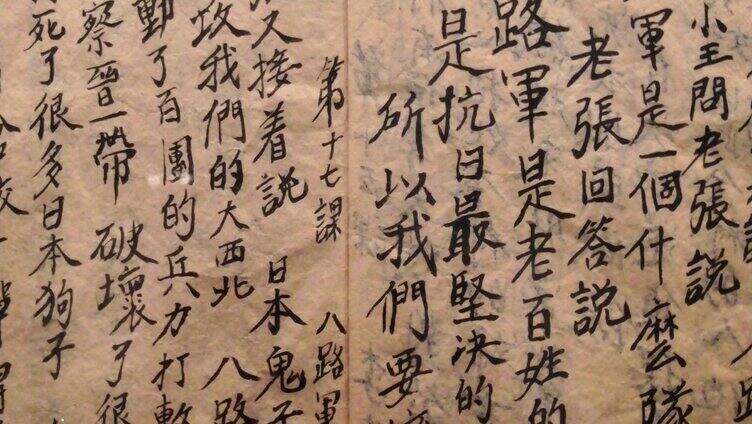 小王問老張說
軍是一個什麼隊
老張回答說
路軍是老百姓的
是抗日最堅決的
所以我們要
第十七課 八路軍
又接着說 日本鬼子
攻我們的大西北 八路
動了百團的兵力打擊
察晋一帶 破壞了很
死了很多日本狗子